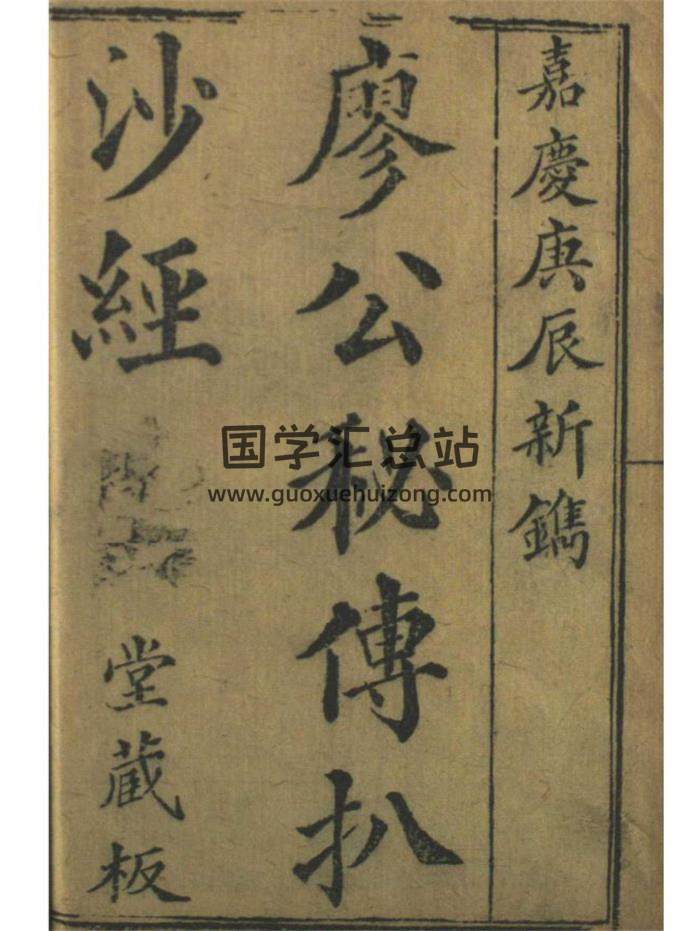 嘉慶庚辰新鐫
廖公秘傳扒
沙經
堂蔵板
国学汇总站
www.guoxuehuizong.com